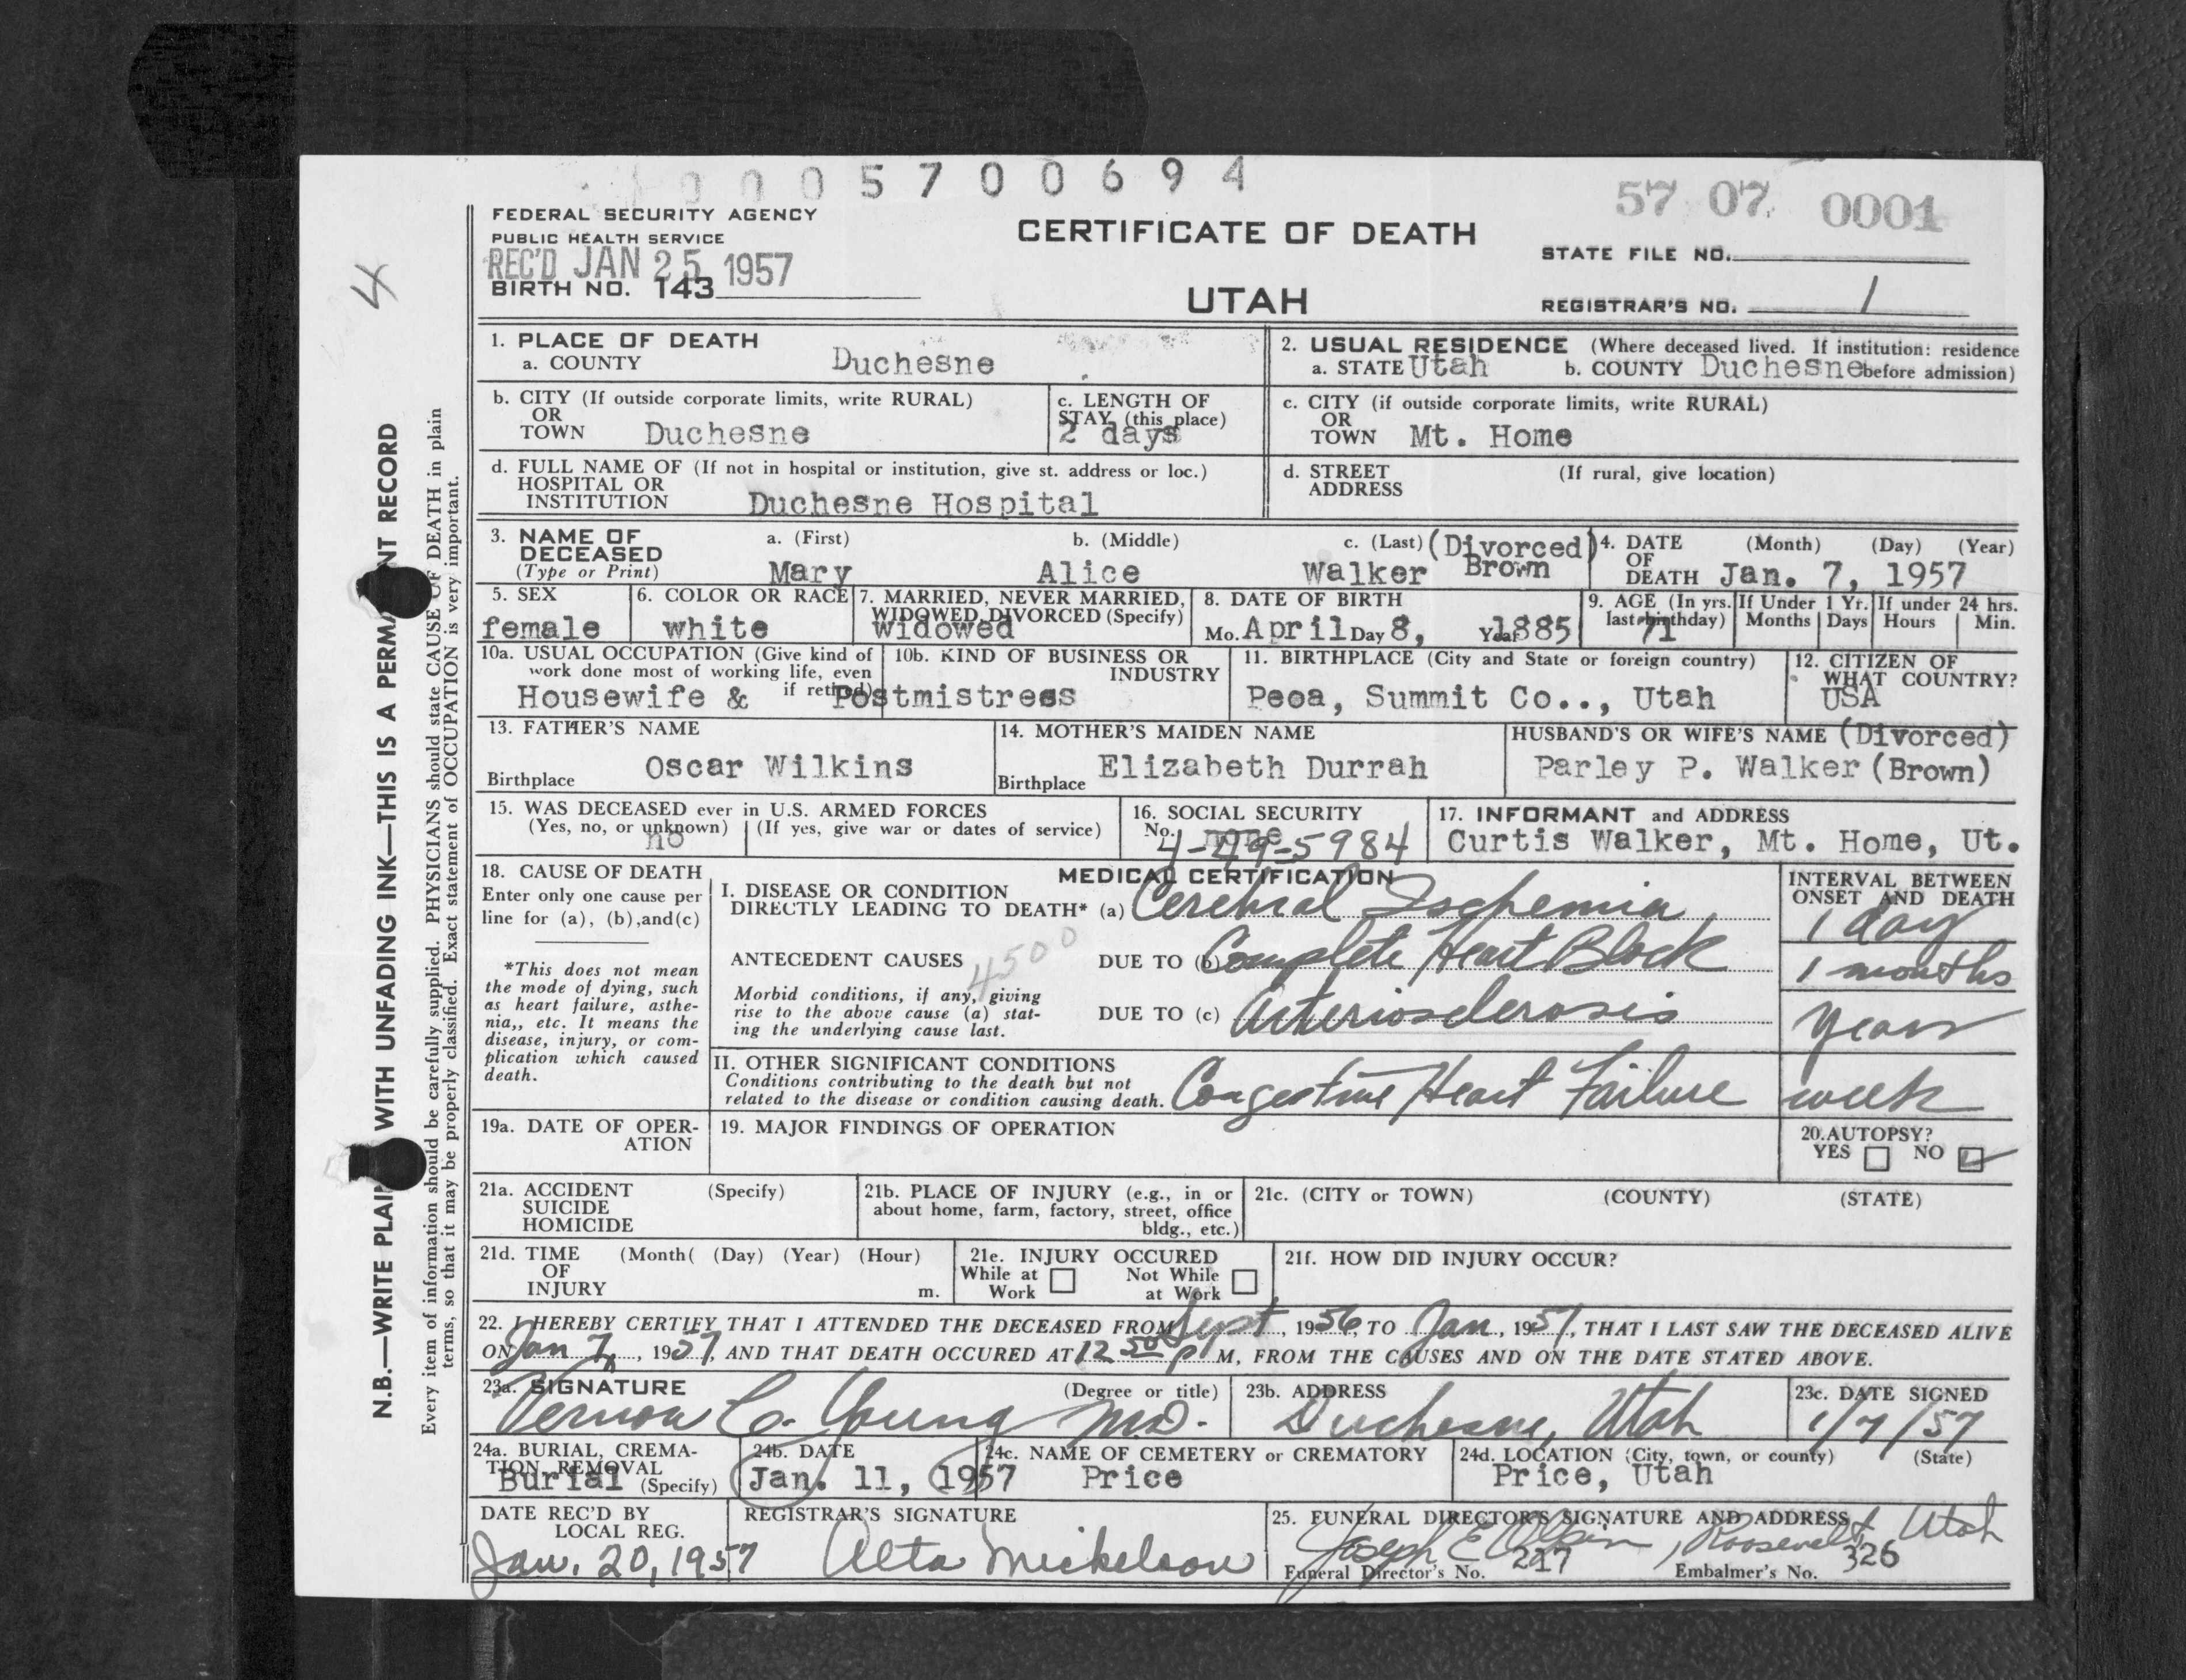 0 0 0 5 7 0 0 6 9 4
57 07 0001
FEDERAL SECURITY AGENCY
PUBLIC HEALTH SERVICE
REC'D JAN 25 1957
BIRTH NO. 143
CERTIFICATE OF DEATH
UTAH
STATE FILE NO.
REGISTRAR'S NO. 1
4
N.B.—WRITE PLAIN WITH UNFADING INK—THIS IS A PERMA NT RECORD
Every item of information should be carefully supplied. PHYSICIANS should state CAUSE OF DEATH in plain
terms, so that it may be properly classified. Exact statement of OCCUPATION is very important.
1. PLACE OF DEATH
a. COUNTY Duchesne
2. USUAL RESIDENCE (Where deceased lived. If institution: residence
a. STATE Utah b. COUNTY Duchesne before admission)
b. CITY (If outside corporate limits, write RURAL)
OR
TOWN Duchesne
c. LENGTH OF
STAY (this place)
2 days
c. CITY (if outside corporate limits, write RURAL)
OR
TOWN Mt. Home
d. FULL NAME OF (If not in hospital or institution, give st. address or loc.)
HOSPITAL OR
INSTITUTION Duchesne Hospital
d. STREET (If rural, give location)
ADDRESS
3. NAME OF a. (First) b. (Middle) c. (Last) (Divorced)
DECEASED
(Type or Print) Mary Alice Walker Brown
4. DATE (Month) (Day) (Year)
OF
DEATH Jan. 7, 1957
5. SEX
female
6. COLOR OR RACE
white
7. MARRIED, NEVER MARRIED,
WIDOWED, DIVORCED (Specify)
widowed
8. DATE OF BIRTH
Mo. April Day 8, Year 1885
9. AGE (In yrs. If Under 1 Yr. If under 24 hrs.
last birthday) Months Days Hours Min.
71
10a. USUAL OCCUPATION (Give kind of
work done most of working life, even
if retired)
Housewife & Postmistress
10b. KIND OF BUSINESS OR
INDUSTRY
11. BIRTHPLACE (City and State or foreign country)
Peoa, Summit Co.., Utah
12. CITIZEN OF
WHAT COUNTRY?
USA
13. FATHER'S NAME
Oscar Wilkins
Birthplace
14. MOTHER'S MAIDEN NAME
Elizabeth Durrah
Birthplace
HUSBAND'S OR WIFE'S NAME (Divorced)
Parley P. Walker (Brown)
15. WAS DECEASED ever in U.S. ARMED FORCES
(Yes, no, or unknown) (If yes, give war or dates of service)
no
16. SOCIAL SECURITY
No. none
4-49-5984
17. INFORMANT and ADDRESS
Curtis Walker, Mt. Home, Ut.
18. CAUSE OF DEATH
Enter only one cause per
line for (a), (b),and(c)
*This does not mean
the mode of dying, such
as heart failure, asthe-
nia,, etc. It means the
disease, injury, or com-
plication which caused
death.
MEDICAL CERTIFICATION
I. DISEASE OR CONDITION
DIRECTLY LEADING TO DEATH* (a) Cerebral Ischemia
ANTECEDENT CAUSES 4500 DUE TO (b) Complete Heart Block
Morbid conditions, if any, giving
rise to the above cause (a) stat-
ing the underlying cause last.
DUE TO (c) Arteriosclerosis
II. OTHER SIGNIFICANT CONDITIONS
Conditions contributing to the death but not
related to the disease or condition causing death. Congestive Heart Failure
INTERVAL BETWEEN
ONSET AND DEATH
1 day
1 months
years
week
19a. DATE OF OPER-
ATION
19. MAJOR FINDINGS OF OPERATION
20. AUTOPSY?
YES NO
21a. ACCIDENT (Specify)
SUICIDE
HOMICIDE
21b. PLACE OF INJURY (e.g., in or
about home, farm, factory, street, office
bldg., etc.)
21c. (CITY or TOWN) (COUNTY) (STATE)
21d. TIME (Month( (Day) (Year) (Hour)
OF
INJURY m.
21e. INJURY OCCURED
While at Not While
Work at Work
21f. HOW DID INJURY OCCUR?
22. I HEREBY CERTIFY THAT I ATTENDED THE DECEASED FROM Sept, 1956, TO Jan, 1957, THAT I LAST SAW THE DECEASED ALIVE
ON Jan 7, 1957, AND THAT DEATH OCCURED AT 12 50 P M, FROM THE CAUSES AND ON THE DATE STATED ABOVE.
23a. SIGNATURE (Degree or title)
Vernon C. Young M.D.
23b. ADDRESS
Duchesne, Utah
23c. DATE SIGNED
1/7/57
24a. BURIAL, CREMA-
TION REMOVAL
Burial (Specify)
24b. DATE
Jan. 11, 1957
24c. NAME OF CEMETERY or CREMATORY
Price
24d. LOCATION (City, town, or county) (State)
Price, Utah
DATE REC'D BY
LOCAL REG.
Jan. 20, 1957
REGISTRAR'S SIGNATURE
Alta Mickelson
25. FUNERAL DIRECTOR'S SIGNATURE AND ADDRESS
Joseph E Olpin, Roosevelt, Utah
Funeral Director's No. 217 Embalmer's No. 326